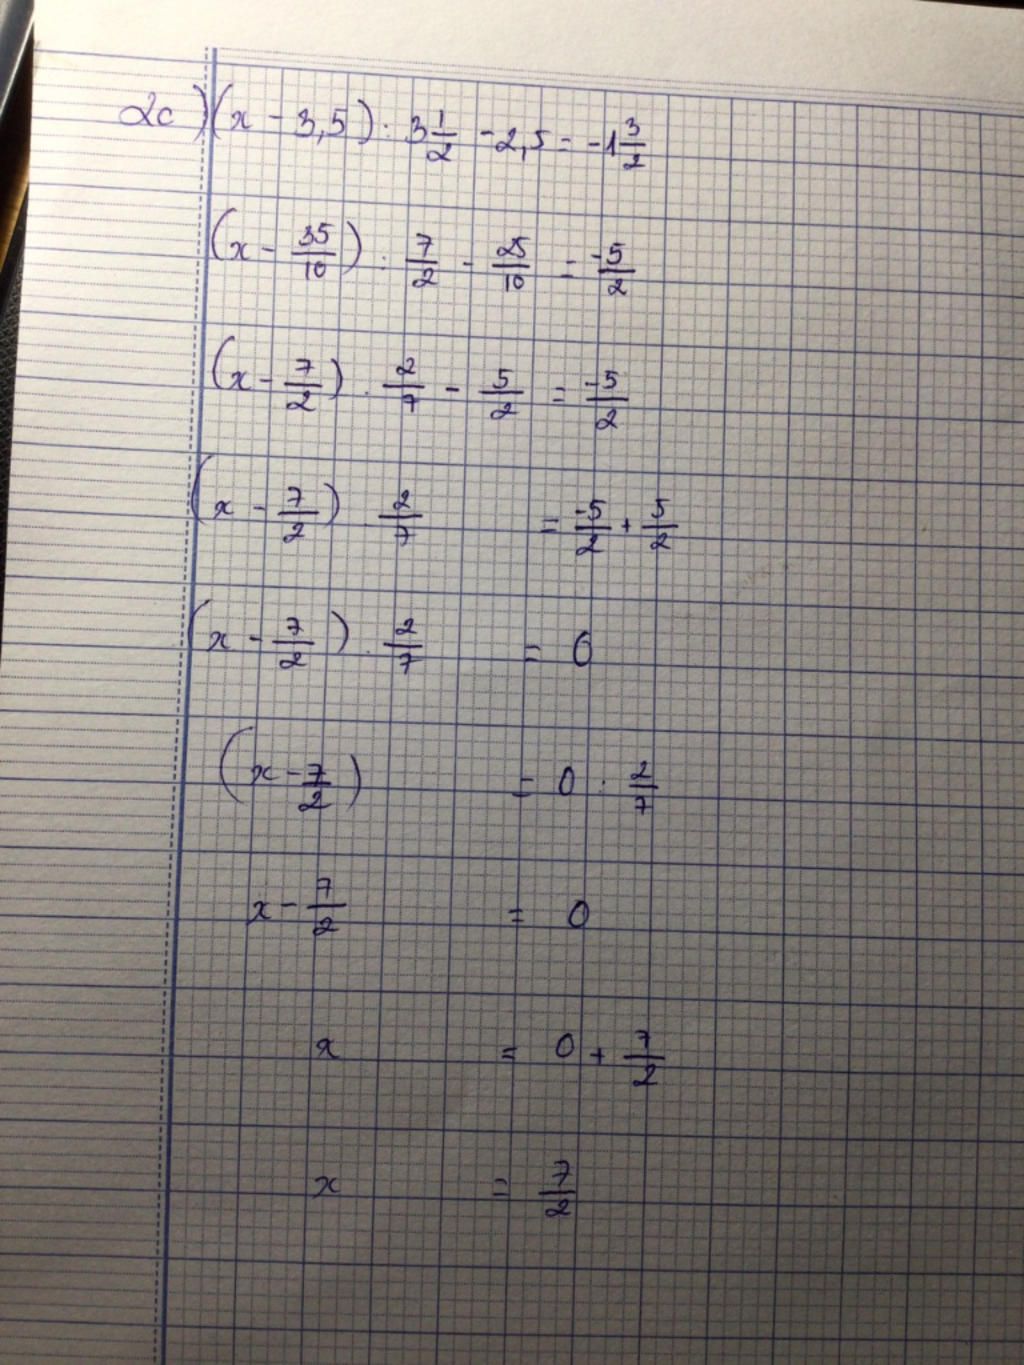 2c) (x - 3,5) : 3 1/2 - 2,5 = -1 3/2
(x - 35/10) : 7/2 - 25/10 = -5/2
(x - 7/2) . 2/7 - 5/2 = -5/2
(x - 7/2) . 2/7 = -5/2 + 5/2
(x - 7/2) . 2/7 = 0
(x - 7/2) = 0 : 2/7
x - 7/2 = 0
x = 0 + 7/2
x = 7/2